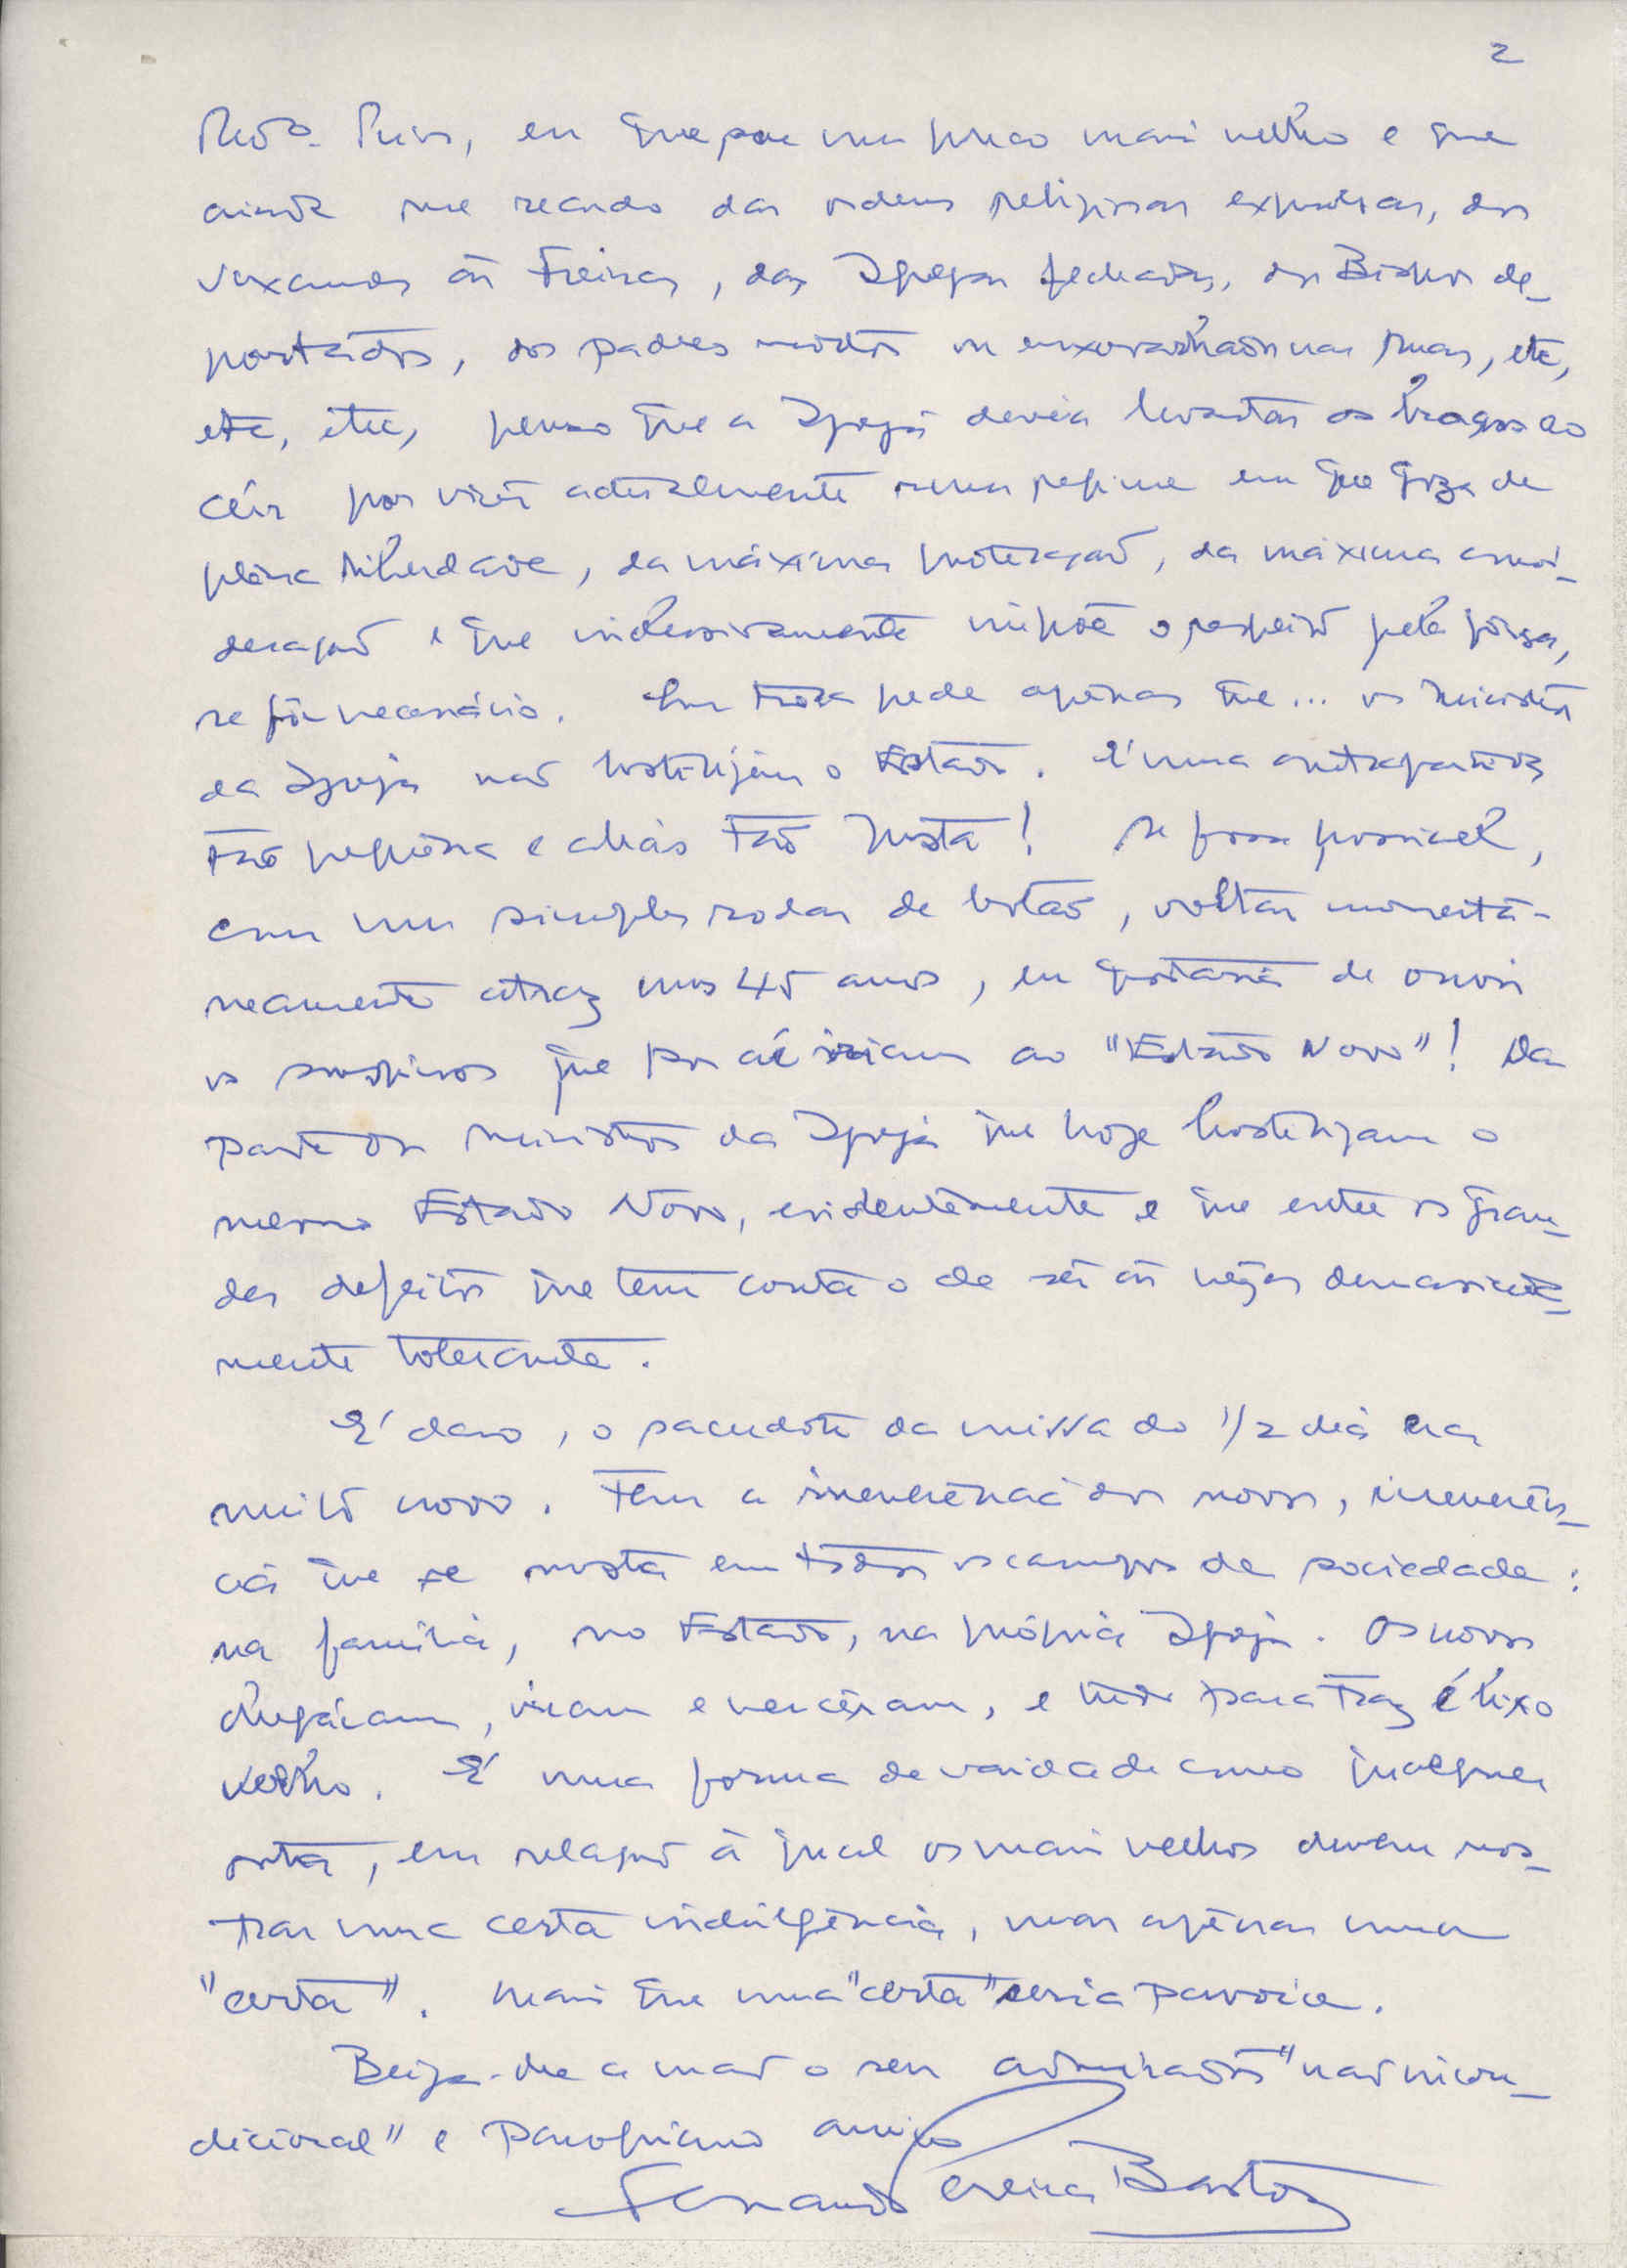 2
eu que sou um pouco mais velho e que
ainda me recordo das ordens religiosas expulsas, dos
vexames às Freiras, das Igrejas fechadas, dos Bispos de-
portados, dos padres mortos ou enxovalhados nas ruas, etc,
etc, etc, penso que a Igreja devia levantar os braços ao
céu por viver actualmente num regime em que goza de
plena liberdade, da máxima protecção, da máxima consi-
deração e que inclusivamente impõe o respeito pela fôrça,
se fôr necessário. Em troca pede apenas que... os ministros
da Igreja não hostilizem o Estado. É uma contrapartida
tão pequena e aliás tão justa! Se fosse possível,
com um simples rodar de botão, voltar momentâ-
neamente atraz uns 45 anos, eu gostaria de ouvir
os suspiros que por aí iriam ao "Estado Novo"! Da
parte dos ministros da Igreja que hoje hostilizam o
mesmo Estado Novo, evidentemente e que entre os gran-
des defeitos que tem conta o de ser às vezes demasiada-
mente tolerante.
É claro, o sacerdote da missa do 1/2 dia era
muito novo. Tem a irreverência dos novos, irreverên-
cia que se nota em todos os campos da sociedade:
na família, no Estado, na própria Igreja. Os novos
chegaram, viram e venceram, e tudo para traz é lixo
velho. É uma forma de vaidade como qualquer
outra, em relação à qual os mais velhos devem mos-
trar uma certa indulgência, mas apenas uma
"certa". Mais que uma "certa" seria parvoice.
Beija-lhe a mão o seu admirador "não incon-
dicional" e amigo
Fernando Pereira Bastos